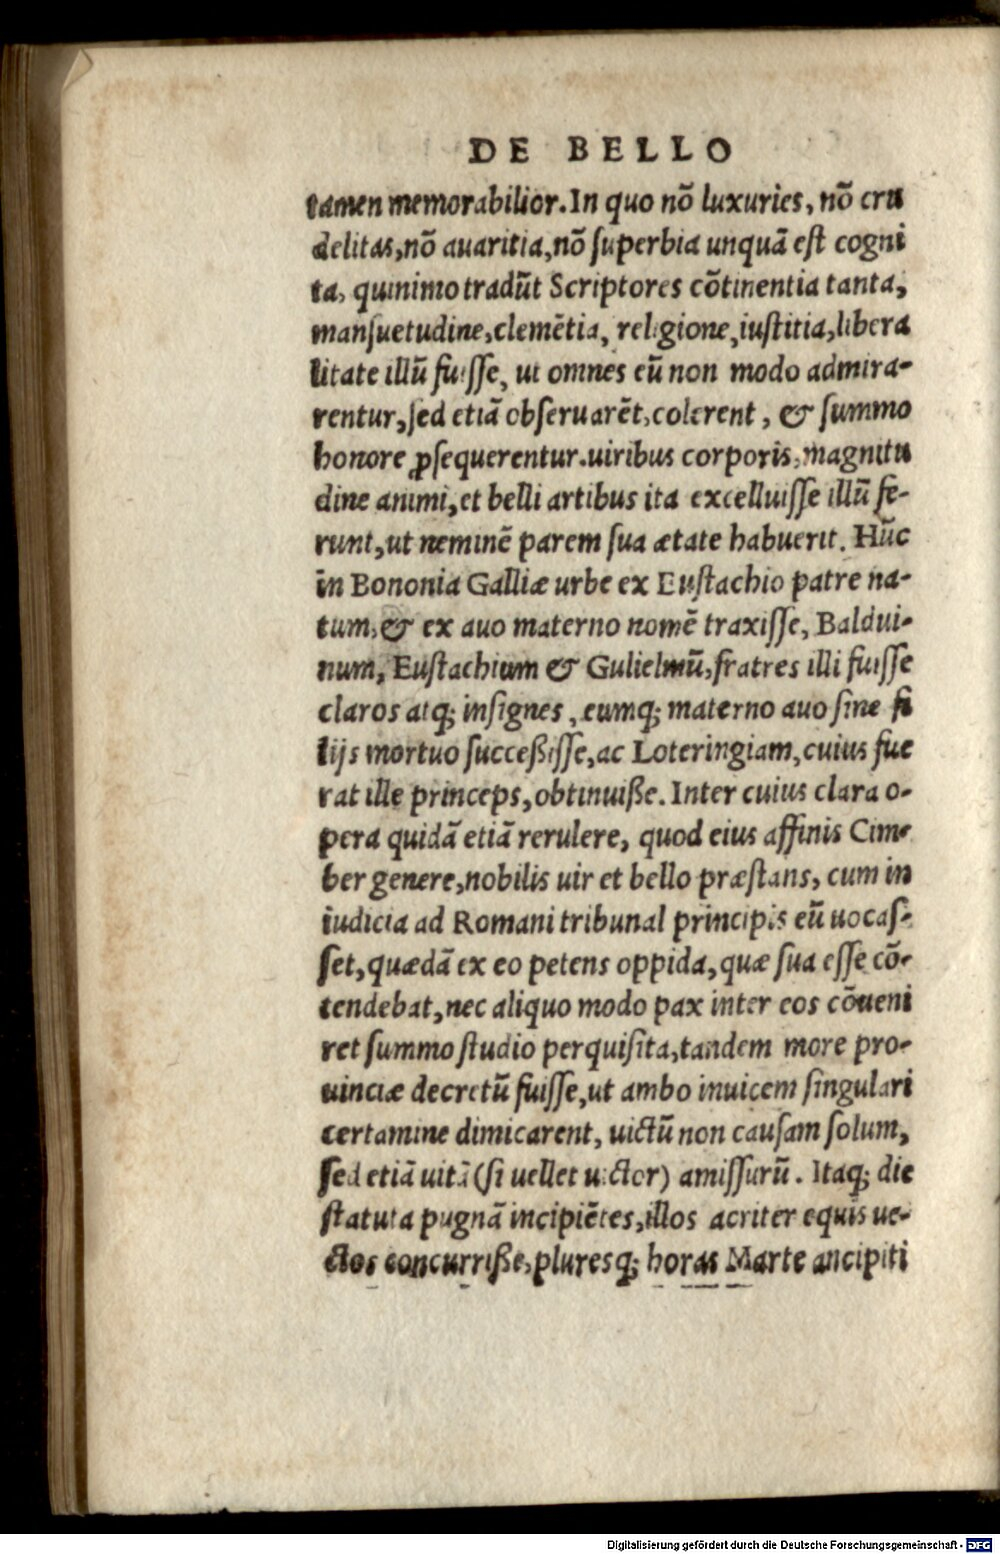 DE BELLO
tamen memorabilior. In quo nõ luxuries, nõ cru
delitas, nõ auaritia, nõ ſuperbia unquã eſt cogni
ta, quinimo tradũt Scriptores cõtinentia tanta,
manſuetudine, clemẽtia, religione, iuſtitia, libera
litate illũ fuiſſe, ut omnes eũ non modo admira-
rentur, ſed etiã obſeruarẽt, colerent, & ſummo
honore ꝑſequerentur. uiribus corporis, magnitu
dine animi, et belli artibus ita excelluiſſe illũ fe-
runt, ut neminẽ parem ſua ætate habuerit. Hũc
in Bononia Galliæ urbe ex Euſtachio patre na-
tum, & ex auo materno nomẽ traxiſſe, Baldui-
num, Euſtachium & Gulielmũ, fratres illi fuiſſe
claros atq; inſignes, eumq; materno auo ſine fi
lijs mortuo ſucceßiſſe, ac Loteringiam, cuius fue
rat ille princeps, obtinuiße. Inter cuius clara o-
pera quidã etiã rerulere, quod eius affinis Cim-
ber genere, nobilis uir et bello præſtans, cum in
iudicia ad Romani tribunal principis eũ uocaſ-
ſet, quædã ex eo petens oppida, quæ ſua eſſe cõ-
tendebat, nec aliquo modo pax inter eos cõueni
ret ſummo ſtudio perquiſita, tandem more pro-
uinciæ decretũ fuiſſe, ut ambo inuicem ſingulari
certamine dimicarent, uictũ non cauſam ſolum,
ſed etiã uitã (ſi uellet uictor) amiſſurũ. Itaq; die
ſtatuta pugnã incipiẽtes, illos acriter equis ue-
ctos concurriße, pluresq; horas Marte ancipiti
Digitalisierung gefördert durch die Deutsche Forschungsgemeinschaft - DFG